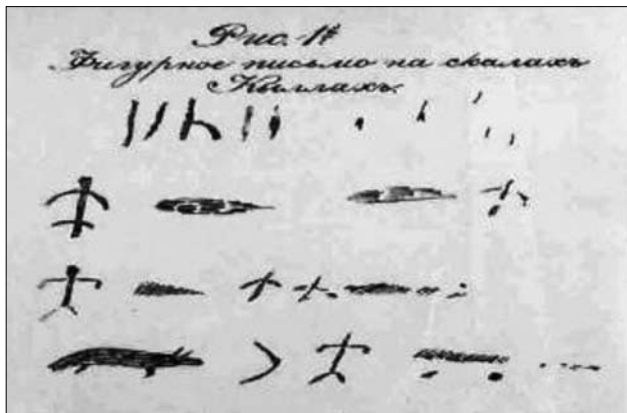 Рис. 14
Фигурное письмо на скалахъ
Кыллахъ.